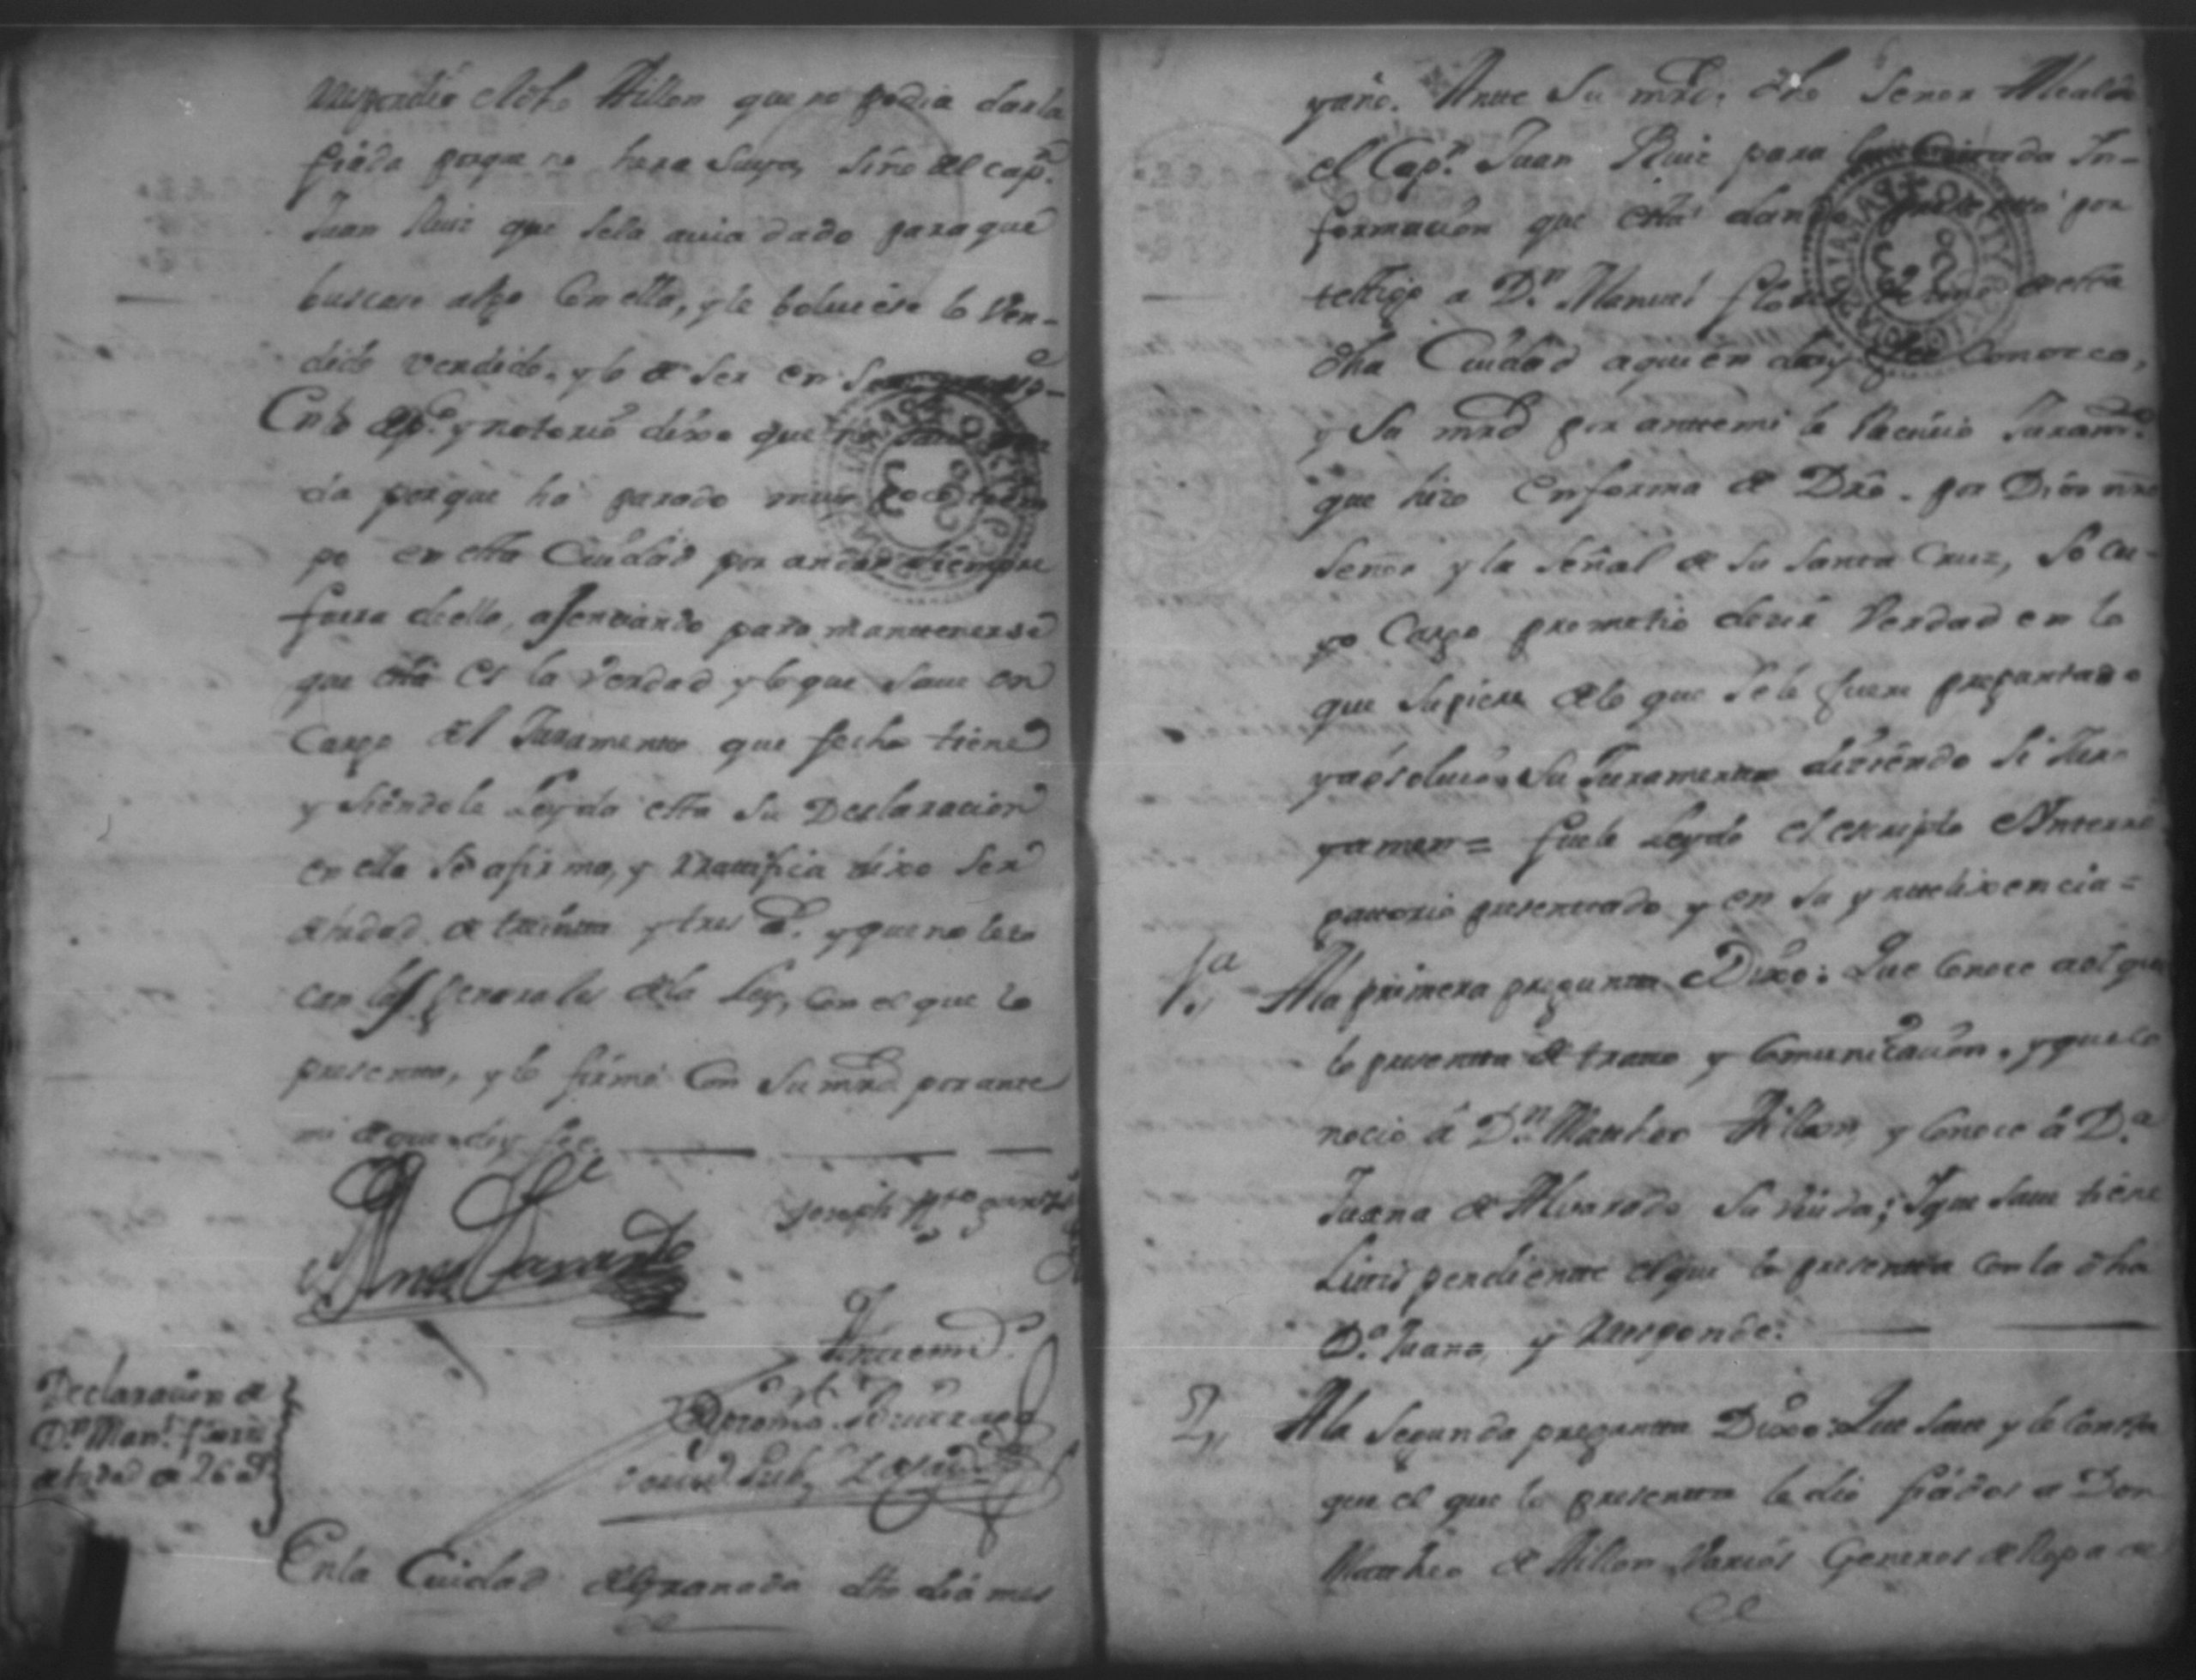 Respondio el dho Aillon que no podia darla
fiada porque no hera Suya, Sino del cap.n
Juan Ruiz que Sela avia dado para que
buscase algo Con ella, y le bolviese lo Ven-
dido vendido. y lo de Ser en
En lo de p.co y notorio dixo que no save na
da porque ha parado muy poco tiem
po en esta Ciudad por andar siempre
fuera de ella, agenciando para mantenerse
que esta es la Verdad y lo que Save en
Cargo del Juramento que fecho tiene
y Siendole Leyda esta Su Declaracion
en ella Se afirma, y rratifica dixo Ser
de hedad de treinta y tres a.s y que no le to
can las Generales de la Ley, Con el que lo
presenta, y lo firmó Con Su mrd por ante
mi de que doy fee.
Joseph
Antemi
Declaracion de
D.n Man.l Flores
de hedad de 26 a.s
En la Ciudad de Granada dho dia mes
y año. Ante Su mrd. dho Señor Alcalde
el Cap.n Juan Ruiz para la In-
formacion que está dando por
testigo a D.n Manuel Flores de esta
dha Ciudad a quien doy fee Conozco,
y Su mrd por antemi le Recivio Juram.to
que hizo En forma de Dro. por Dios nro
Señor y la Señal de Su Santa Cruz, So cu-
yo Cargo prometio decir Verdad en lo
que Supiere de lo que Se le fuere preguntado
y a Su Juramento diziendo Si Juro
y amen = fuele Leydo el escripto e Interro
gatorio presentado y en Su ynteligencia =
1.a A la primera pregunta Dixo: Que Conoce a el que
lo presenta de trato y Comunicacion, y que co
nocio á D.n Matheo Aillon, y Conoce á D.a
Juana de Alvarado Su viuda; Y que Save tiene
Litis pendiente el que lo presenta Con la dha
D.a Juana, y Responde.
2,, A la Segunda pregunta Dixo: Que Save y le Consta
que el que lo presenta le dio fiados a Don
Matheo de Aillon Varios Generos de Ropa de